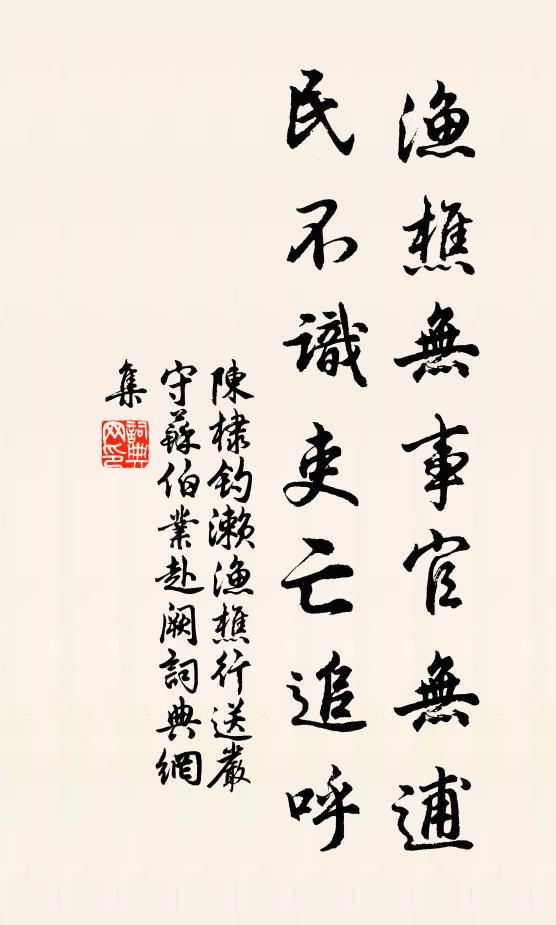 漁樵無事官無逋
民不識吏亡追呼
陳棣釣瀨漁樵行送嚴
守蘇伯業赴闕詞典網
集
詞典
网印